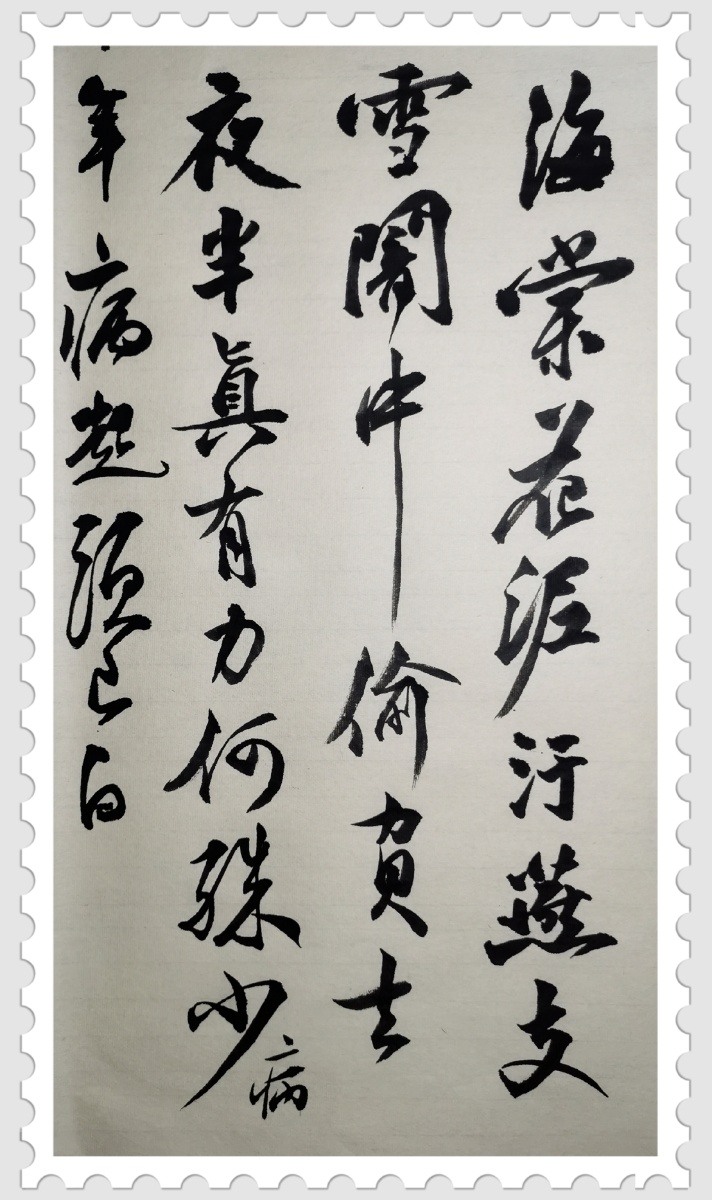 海棠花泥汙燕支
雪闇中偷負去
夜半真有力何殊少病
年病起頭已白